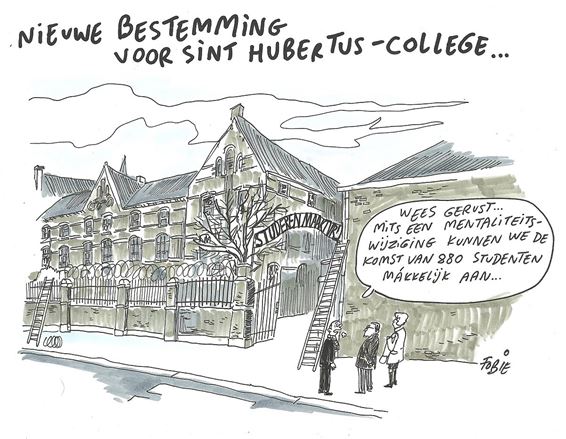 NIEUWE BESTEMMING
VOOR SINT HUBERTUS-COLLEGE...
STUDEREN MACHT
WEES GERUST...
MITS EEN MENTALITEITS-
WIJZIGING KUNNEN WE DE
KOMST VAN 880 STUDENTEN
MÁKKELIJK AAN...
FOBIE